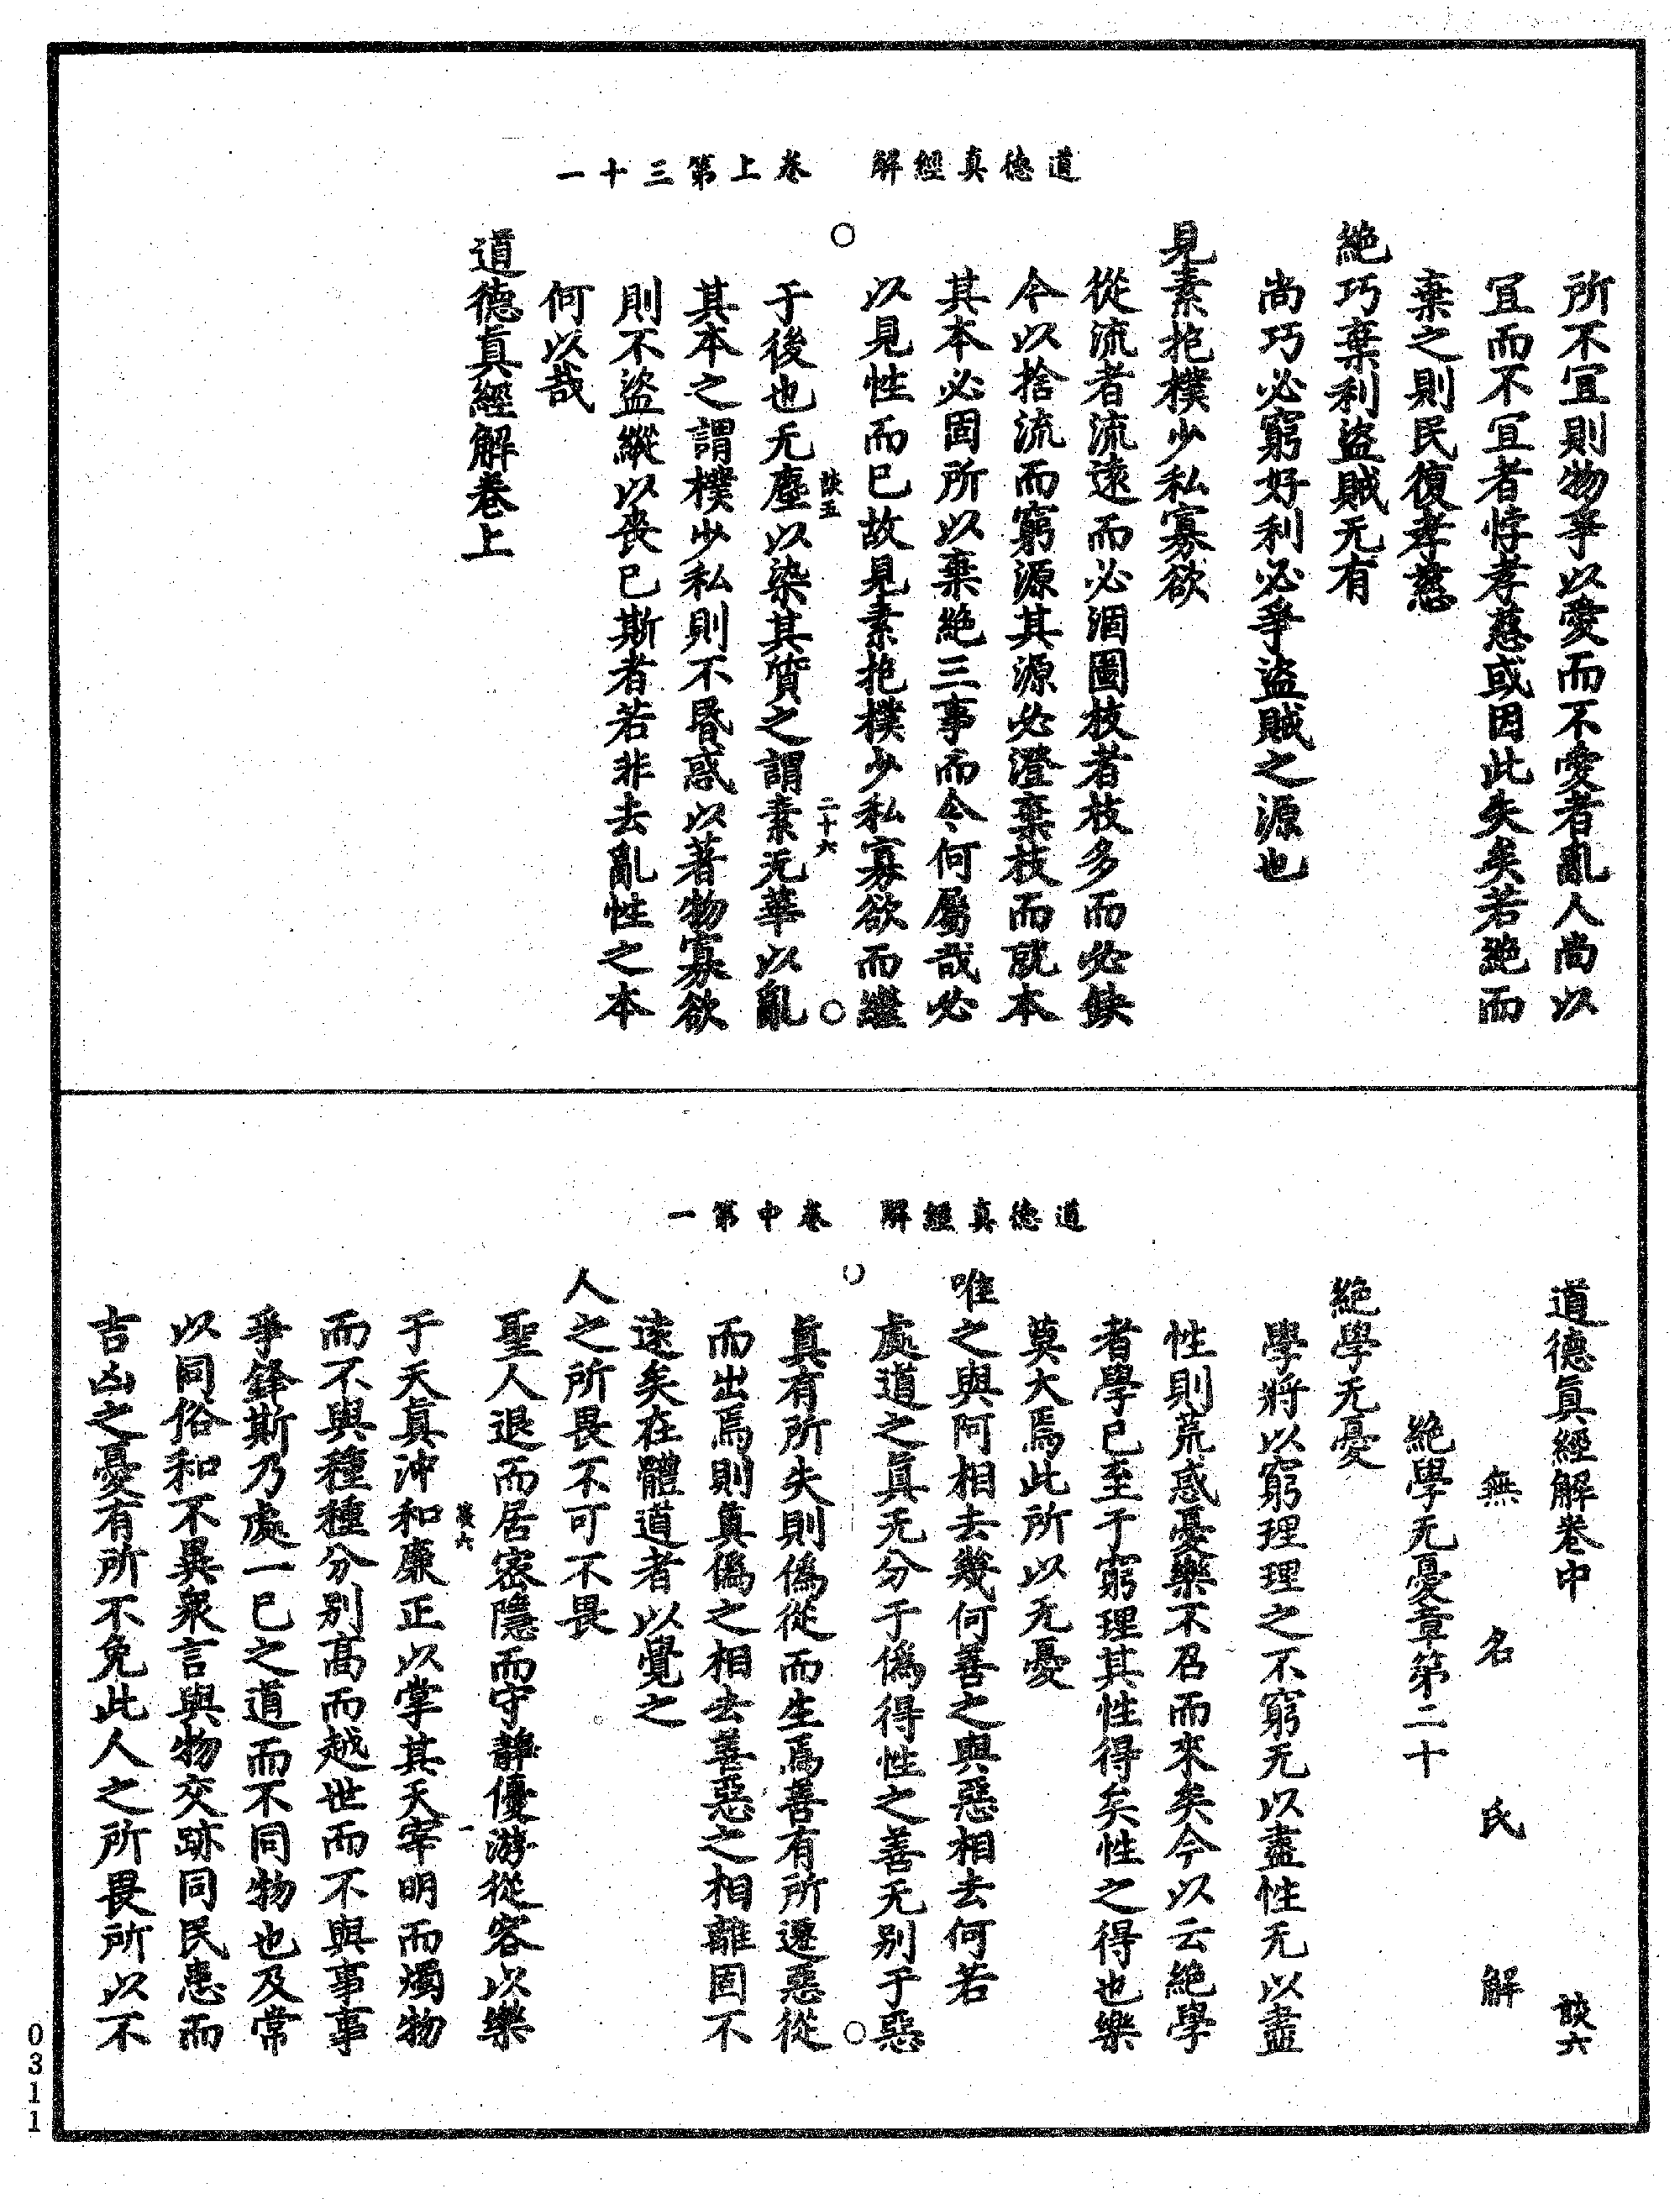 道德真經解　卷上第三十一
所不宜則物爭以愛而不愛者亂人尚以
宜而不宜者悖孝慈或因此失矣若絕而
棄之則民復孝慈
絕巧棄利盜賊无有
尚巧必窮好利必爭盜賊之源也
見素抱樸少私寡欲
從流者流遠而必涸圖枝者枝多而必缺
今以捨流而窮源其源必澄棄枝而就本
其本必固所以棄絕三事而令何屬哉必
以見性而已故見素抱樸少私寡欲而繼
談五　二十六
于後也无塵以染其質之謂素无華以亂
其本之謂樸少私則不昬惑以著物寡欲
則不盜縱以喪已斯者若非去亂性之本
何以哉
道德眞經解卷上
道德真經解　卷中第一
道德眞經解卷中　談六
無名氏解
絕學无憂章第二十
絕學无憂
學將以窮理理之不窮无以盡性无以盡
性則荒惑憂樂不召而來矣今以云絕學
者學已至于窮理其性得矣性之得也樂
莫大焉此所以无憂
唯之與阿相去幾何善之與惡相去何若
處道之眞无分于僞得性之善无別于惡
眞有所失則僞從而生焉善有所遷惡從
而出焉則眞僞之相去善惡之相離固不
遠矣在體道者以覺之
人之所畏不可不畏
聖人退而居密隱而守靜優游從容以樂
談六　一
于天眞沖和廉正以掌其天宰明而燭物
而不與種種分別高而越世而不與事事
爭鋒斯乃處一已之道而不同物也及常
以同俗和不異衆言與物交跡同民患而
吉凶之憂有所不免此人之所畏所以不
0311